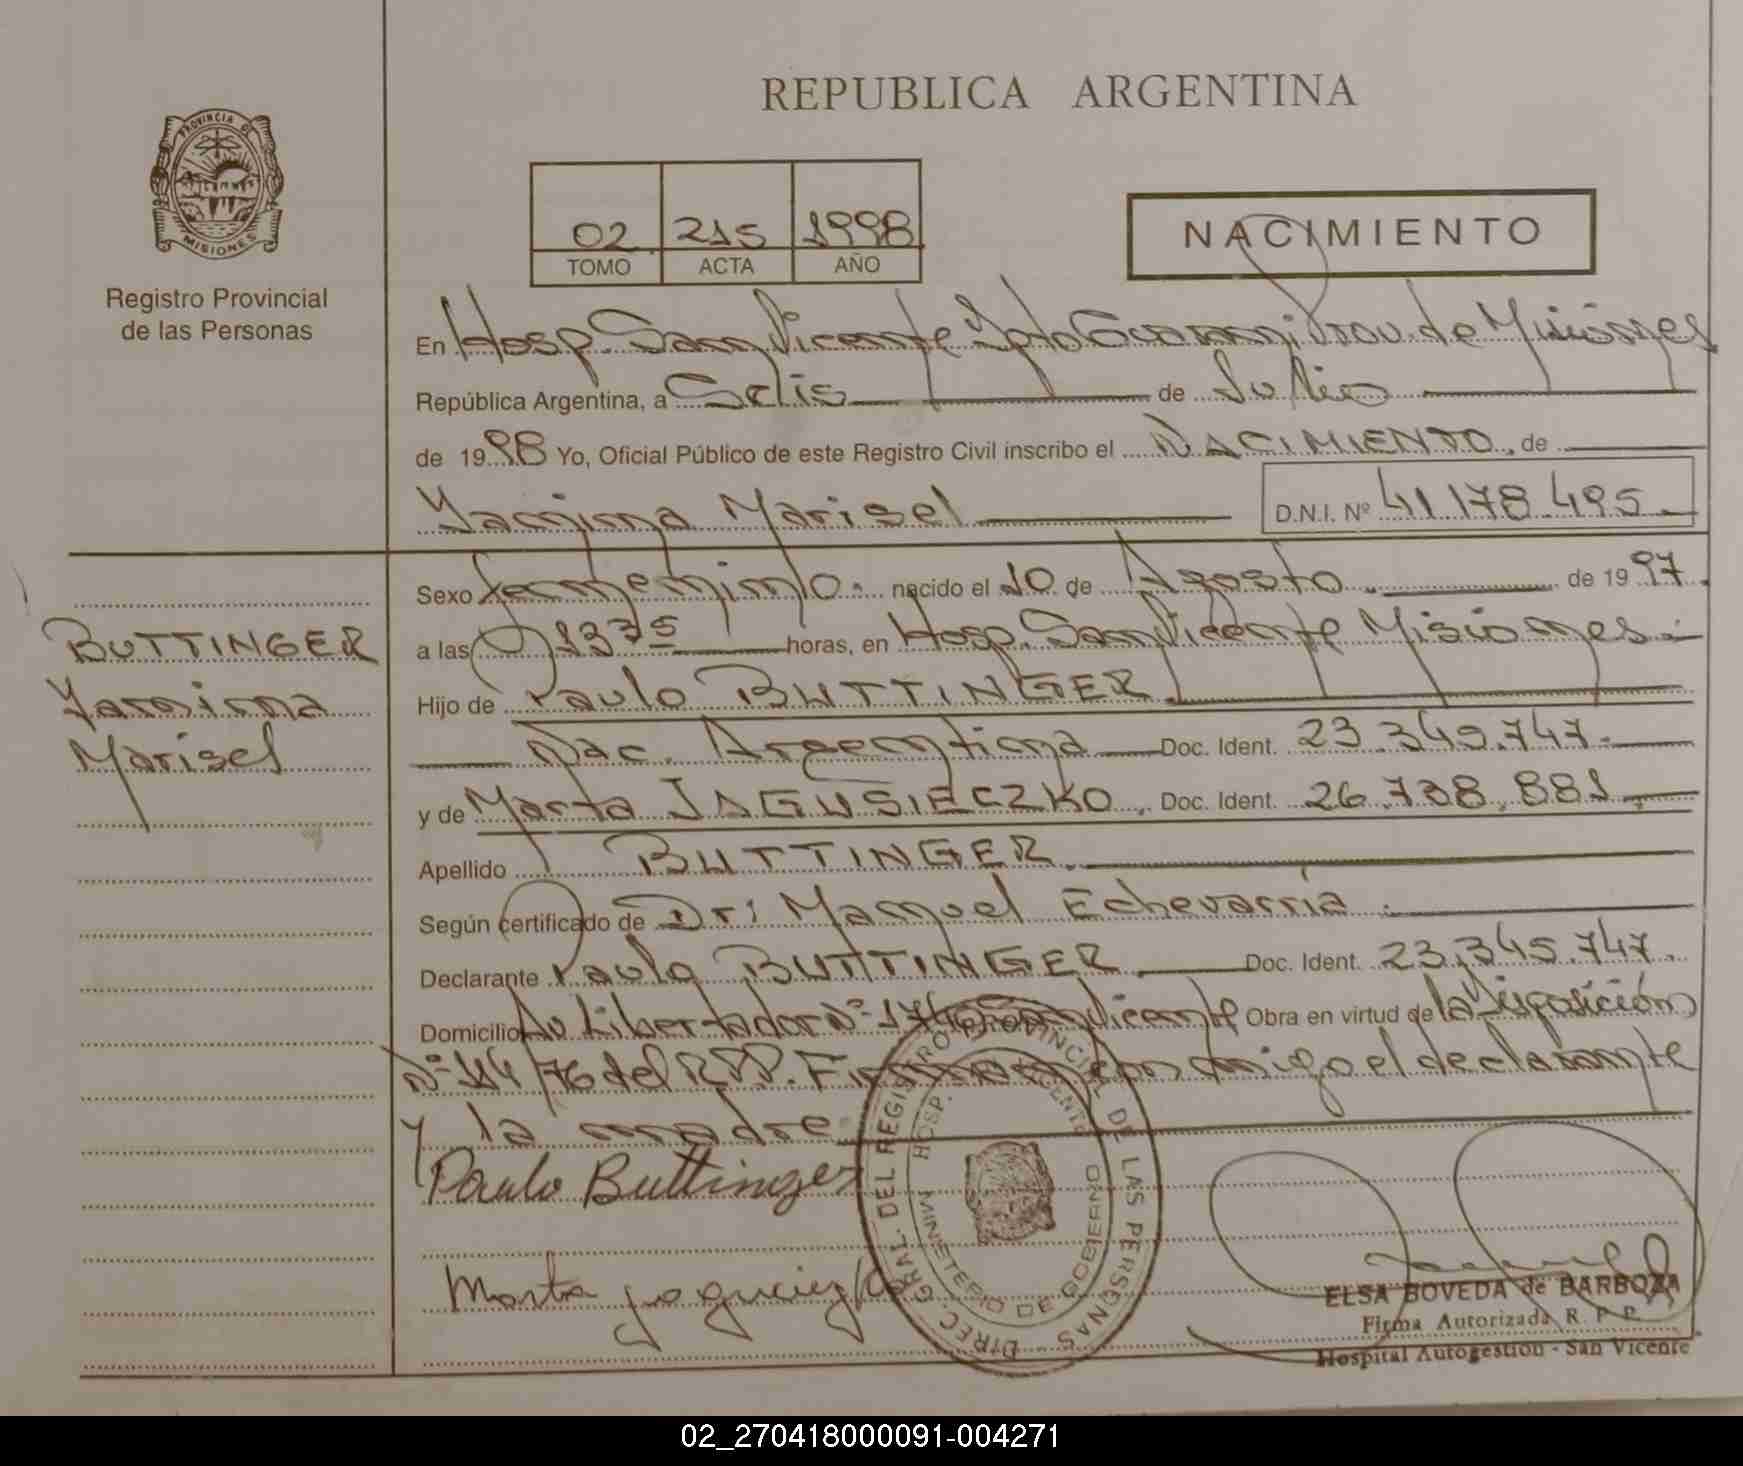 REPUBLICA ARGENTINA
PROVINCIA DE
MISIONES
Registro Provincial
de las Personas
02 215 1998
TOMO ACTA AÑO
NACIMIENTO
En Hosp. San Vicente Dpto Guarani Prov. de Misiones
República Argentina, a Seis de Julio
de 1998 Yo, Oficial Público de este Registro Civil inscribo el NACIMIENTO, de
Yanina Marisel D.N.I. Nº 41.178.495
BUTTINGER
Yanina
Marisel
Sexo femenino. nacido el 10 de Agosto de 1997
a las 13 horas, en Hosp. San Vicente Misiones
Hijo de Paulo BUTTINGER
Nac. Argentina Doc. Ident. 23.345.747
y de Marta JAGUSIECZKO, Doc. Ident. 26.738.881
Apellido BUTTINGER
Según certificado de Dr: Manuel Echevarria
Declarante Paulo BUTTINGER Doc. Ident. 23.345.747.
Domicilio Av. Libertador Nº San Vicente Obra en virtud de la Disposición
Nº 114/76 del R.P.P. Firman conmigo el declarante
y la madre
Paulo Buttinger
Marta
DIREC. GRAL. DEL REGISTRO PROVINCIAL DE LAS PERSONAS
HOSP. VICENTE
MINISTERIO DE GOBIERNO
ELSA BOVEDA de BARBOZA
Firma Autorizada R. P. P.
Hospital Autogestion - San Vicente
02_270418000091-004271